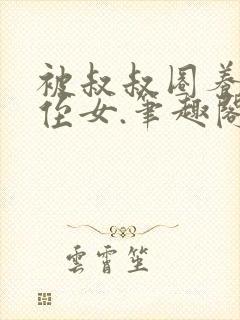 被叔叔圈养
侄女.笔趣阁
云霄笙